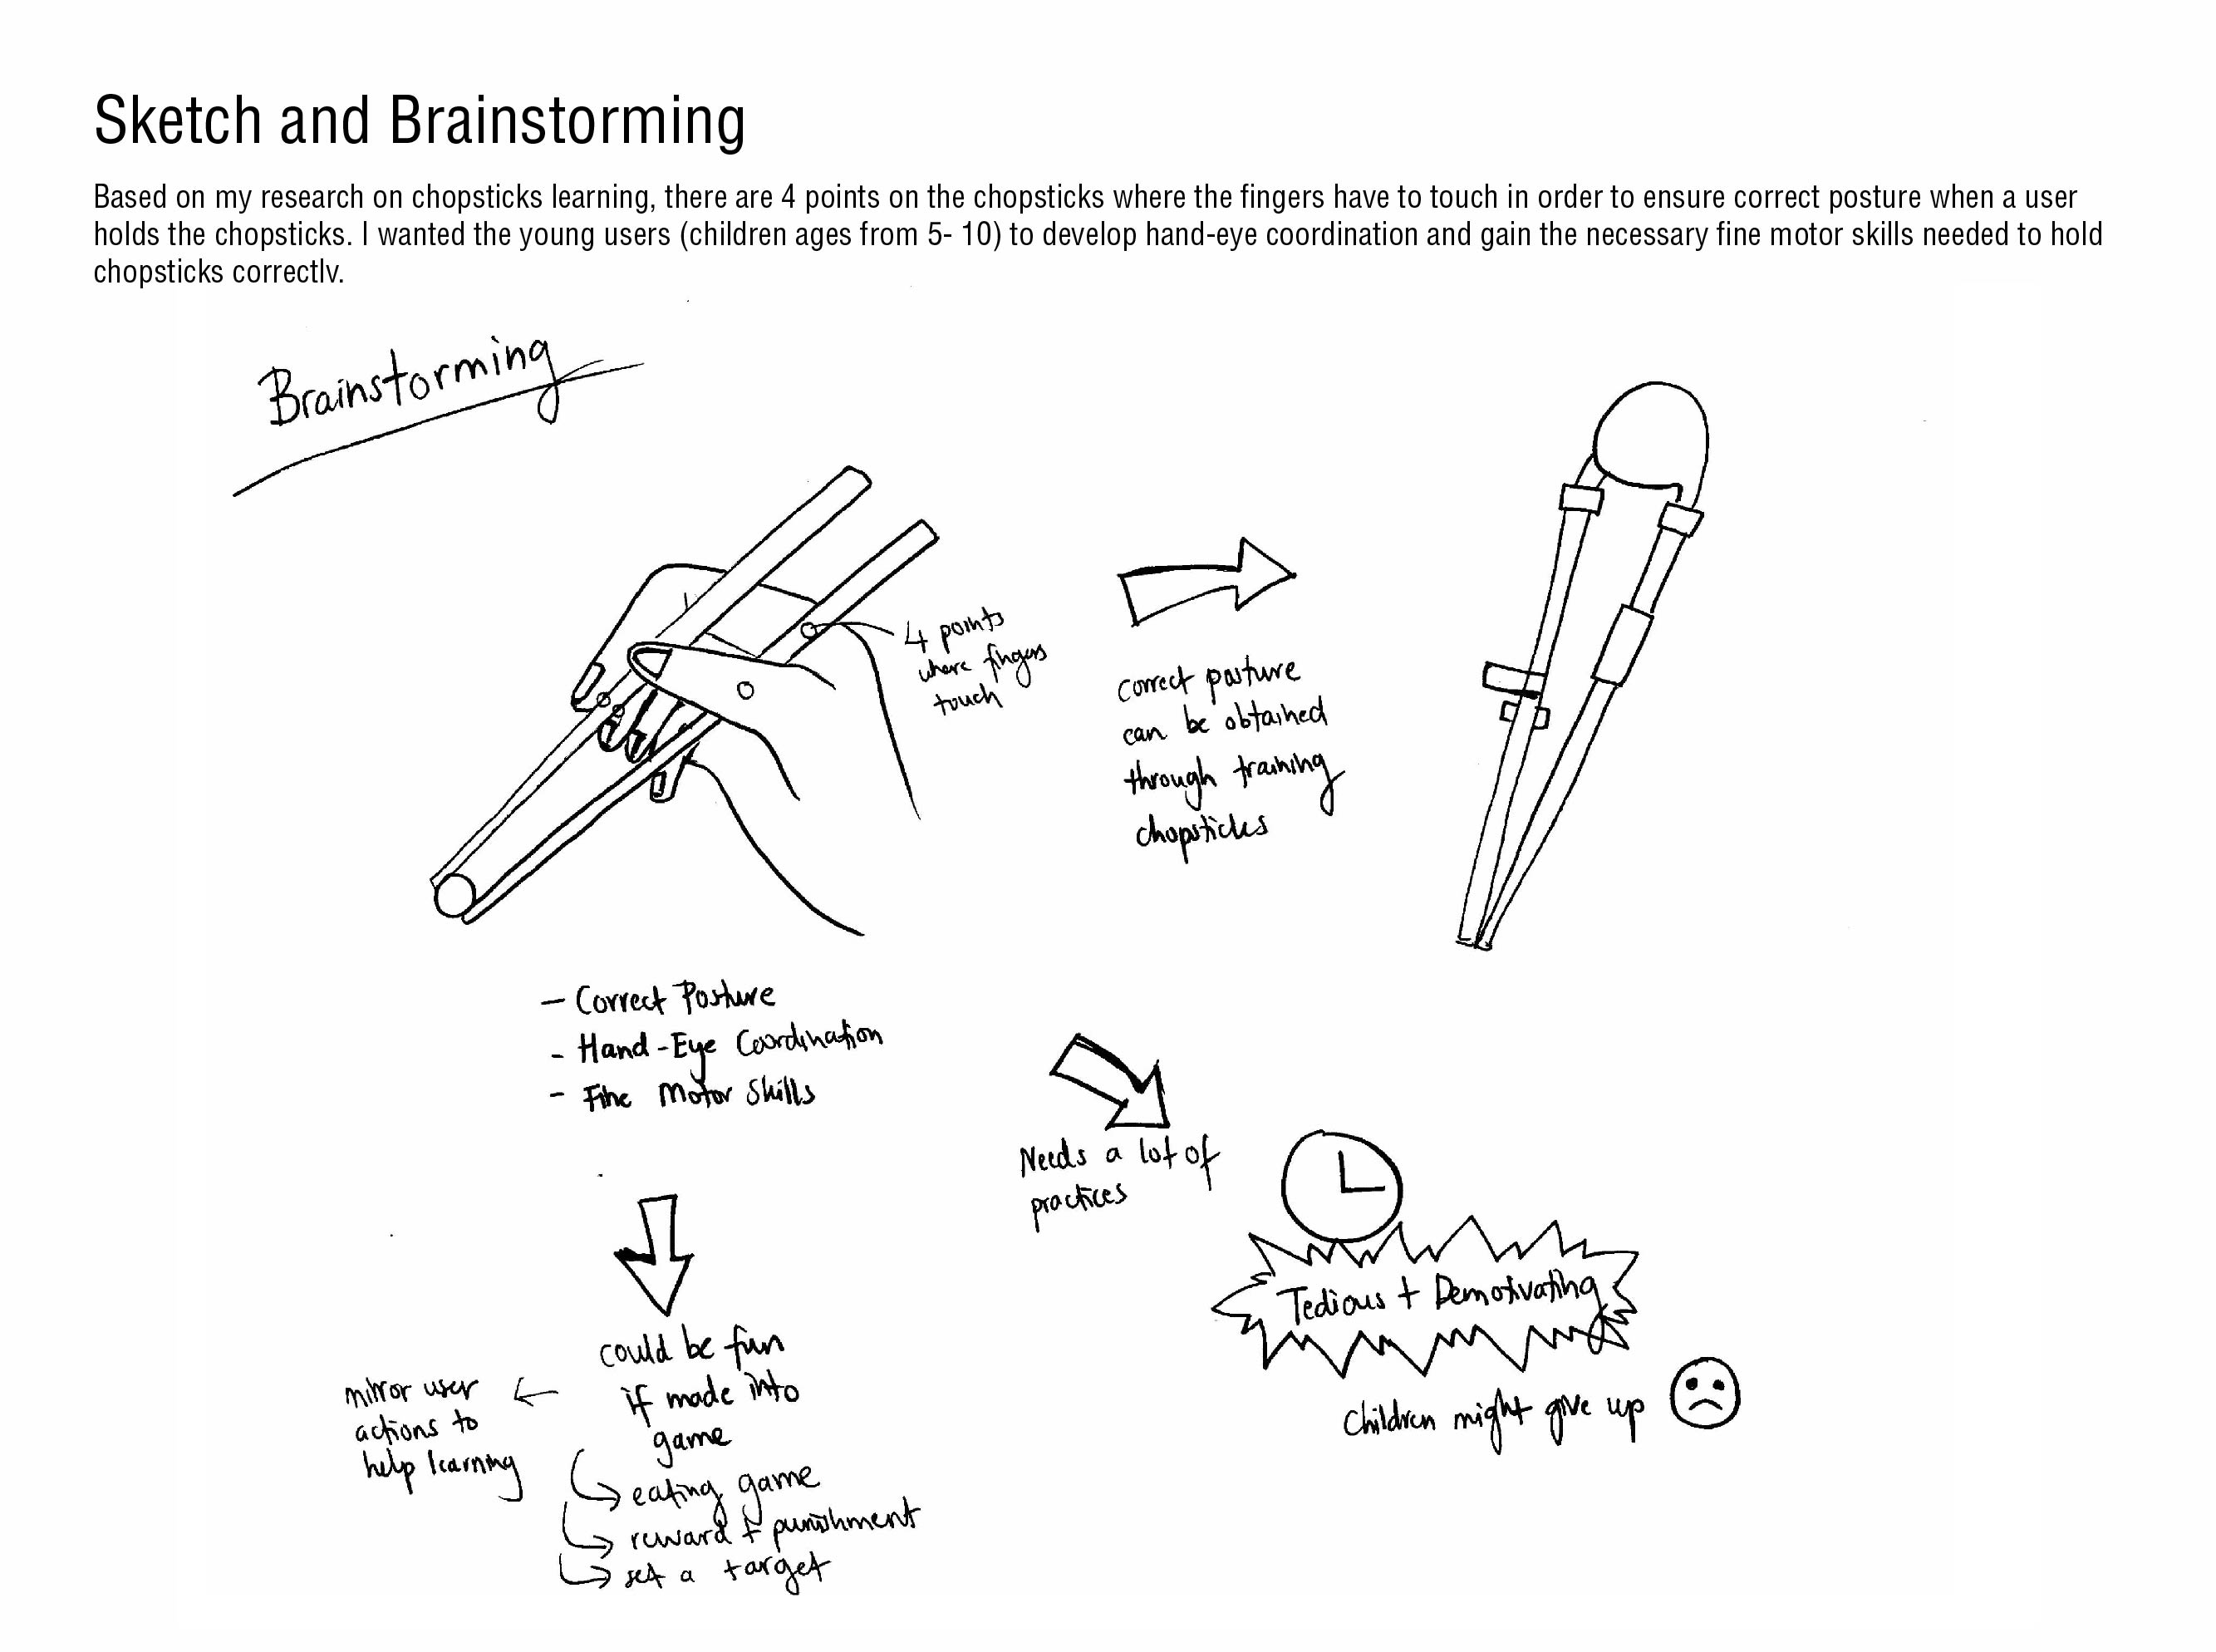 Sketch and Brainstorming
Based on my research on chopsticks learning, there are 4 points on the chopsticks where the fingers have to touch in order to ensure correct posture when a user
holds the chopsticks. I wanted the young users (children ages from 5- 10) to develop hand-eye coordination and gain the necessary fine motor skills needed to hold
chopsticks correctly.
Brainstorming
4 points
where fingers
touch
correct posture
can be obtained
through training
chopsticks
- Correct Posture
- Hand-Eye Coordination
- Fine Motor Skills
Needs a lot of
practices
Tedious + Demotivating
Children might give up
could be fun
if made into
game
mirror user
actions to
help learning
eating game
reward + punishment
set a target